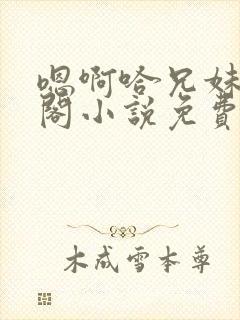 嗯啊哈兄妹
阁小說免費
木成雪本尊